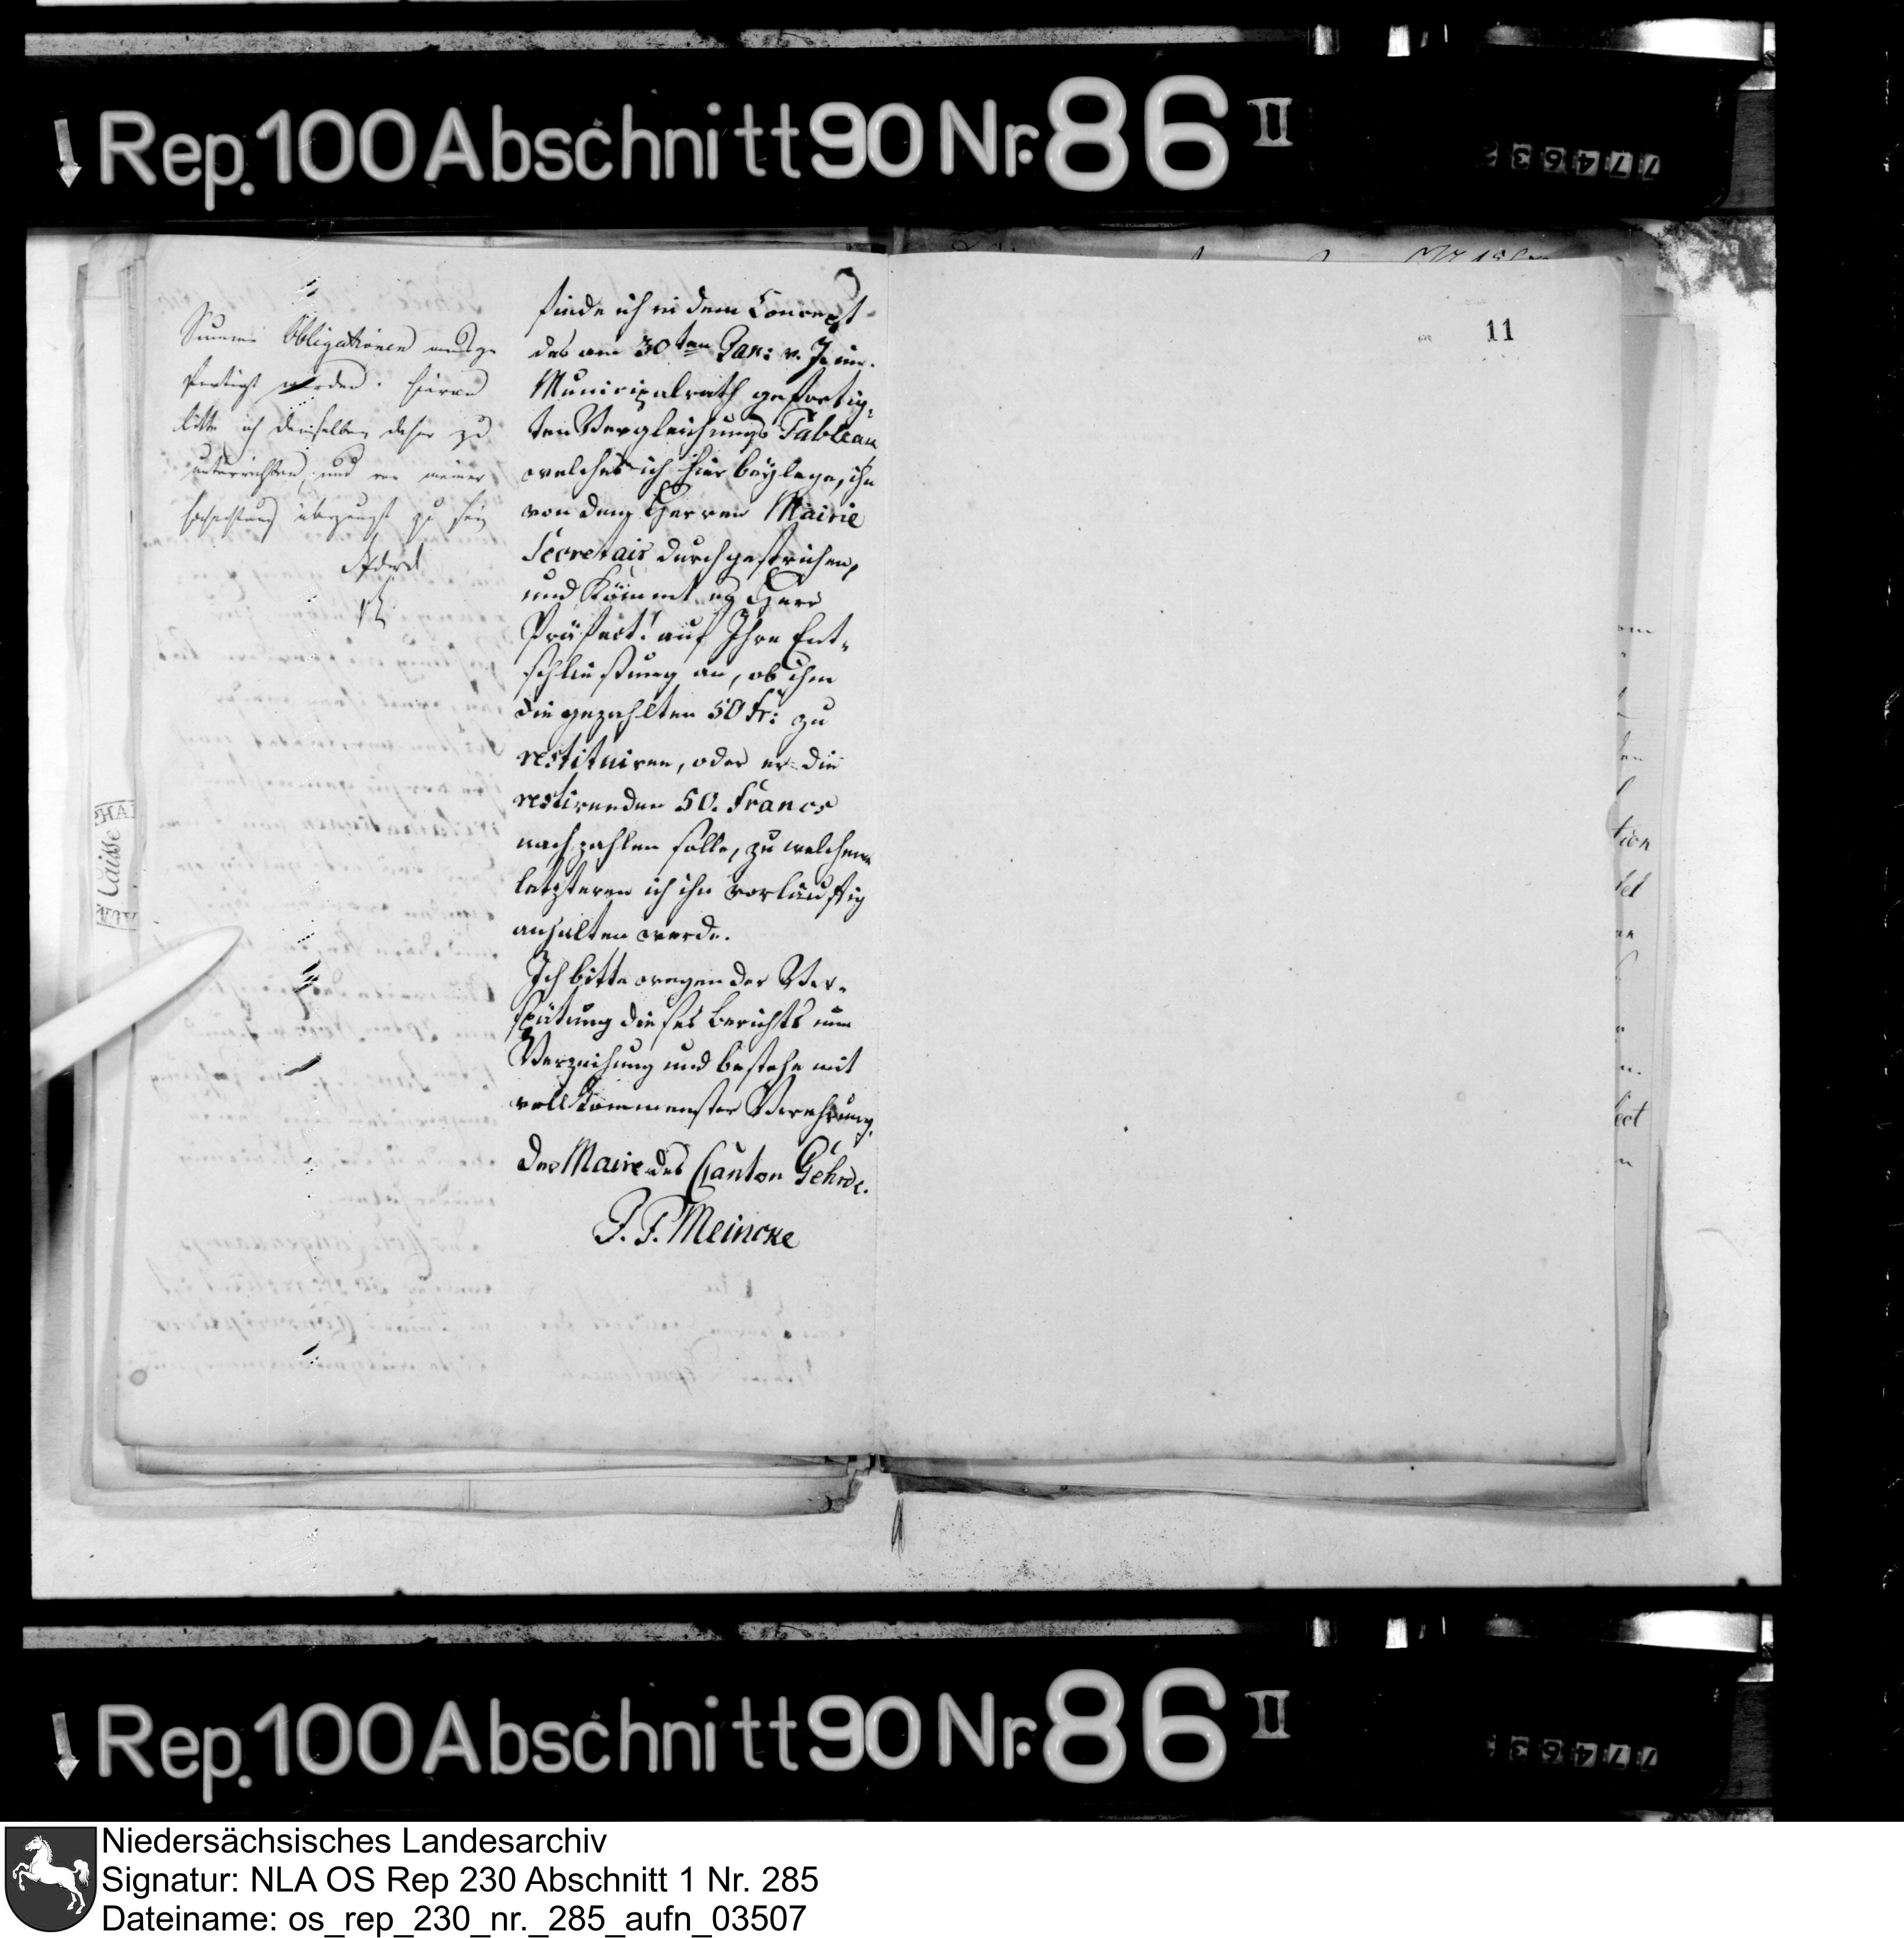 Rep. 100 Abschnitt 90 Nr. 86 II
11
Summe Obligationen
werden. hievon
bitte ich denselben daher zu
unterrichten, und von meiner
Hochachtung überzeugt zu sein
finde ich in dem Concept
des am 30ten Jan: v. J. im
Municipalrath gefertig-
ten Vergleichungs Tableau
welches ich hier beÿlege, ihn
von dem Herren Mairie
Secretair durchgestrichen,
und kömmt es Herr
Präfect! auf Ihre Ent-
schließung an, ob ihm
die gezahlten 50 Fr: zu
restituiren, oder er die
restirenden 50. Francs
nachzahlen solle, zu welchem
letzteren ich ihn vorläufig
anhalten werde.
Ich bitte wegen der Ver-
spätung dieses Berichts um
Verzeihung und bestehe mit
vollkommenster Verehrung.
Der Maire des Canton Gehrde.
P. F. Meincke
Caisse
Rep. 100 Abschnitt 90 Nr. 86 II
Niedersächsisches Landesarchiv
Signatur: NLA OS Rep 230 Abschnitt 1 Nr. 285
Dateiname: os_rep_230_nr._285_aufn_03507